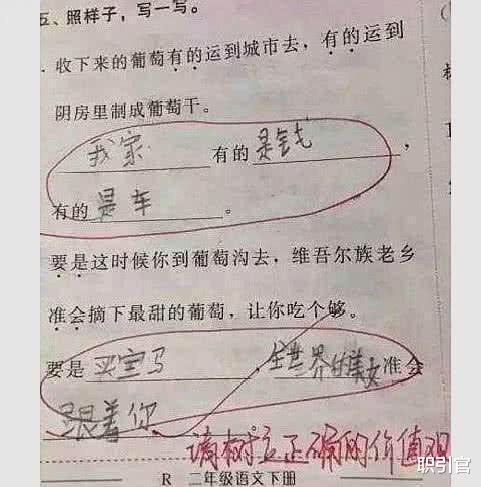 五、照样子，写一写。
收下来的葡萄有的运到城市去，有的运到
阴房里制成葡萄干。
我家有的是钱，
有的是车。
要是这时候你到葡萄沟去，维吾尔族老乡
准会摘下最甜的葡萄，让你吃个够。
要是买宝马，全世界的美女准会
跟着你
请树立正确的价值观
R 二年级语文下册
职引官